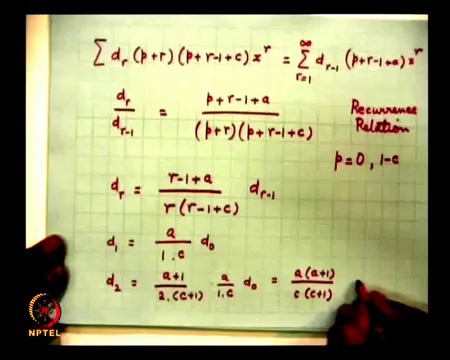 ∑ d_r (p+r) (p+r-1+c) x^r = ∑_{r=1}^{∞} d_{r-1} (p+r-1+a) x^r
d_r / d_{r-1} = (p+r-1+a) / ((p+r) (p+r-1+c))
Recurrence
Relation
p=0, 1-c
d_r = (r-1+a) / (r (r-1+c)) d_{r-1}
d_1 = a / (1.c) d_0
d_2 = (a+1) / (2.(c+1)) · a / (1.c) d_0 = a(a+1) / (c(c+1))
NPTEL